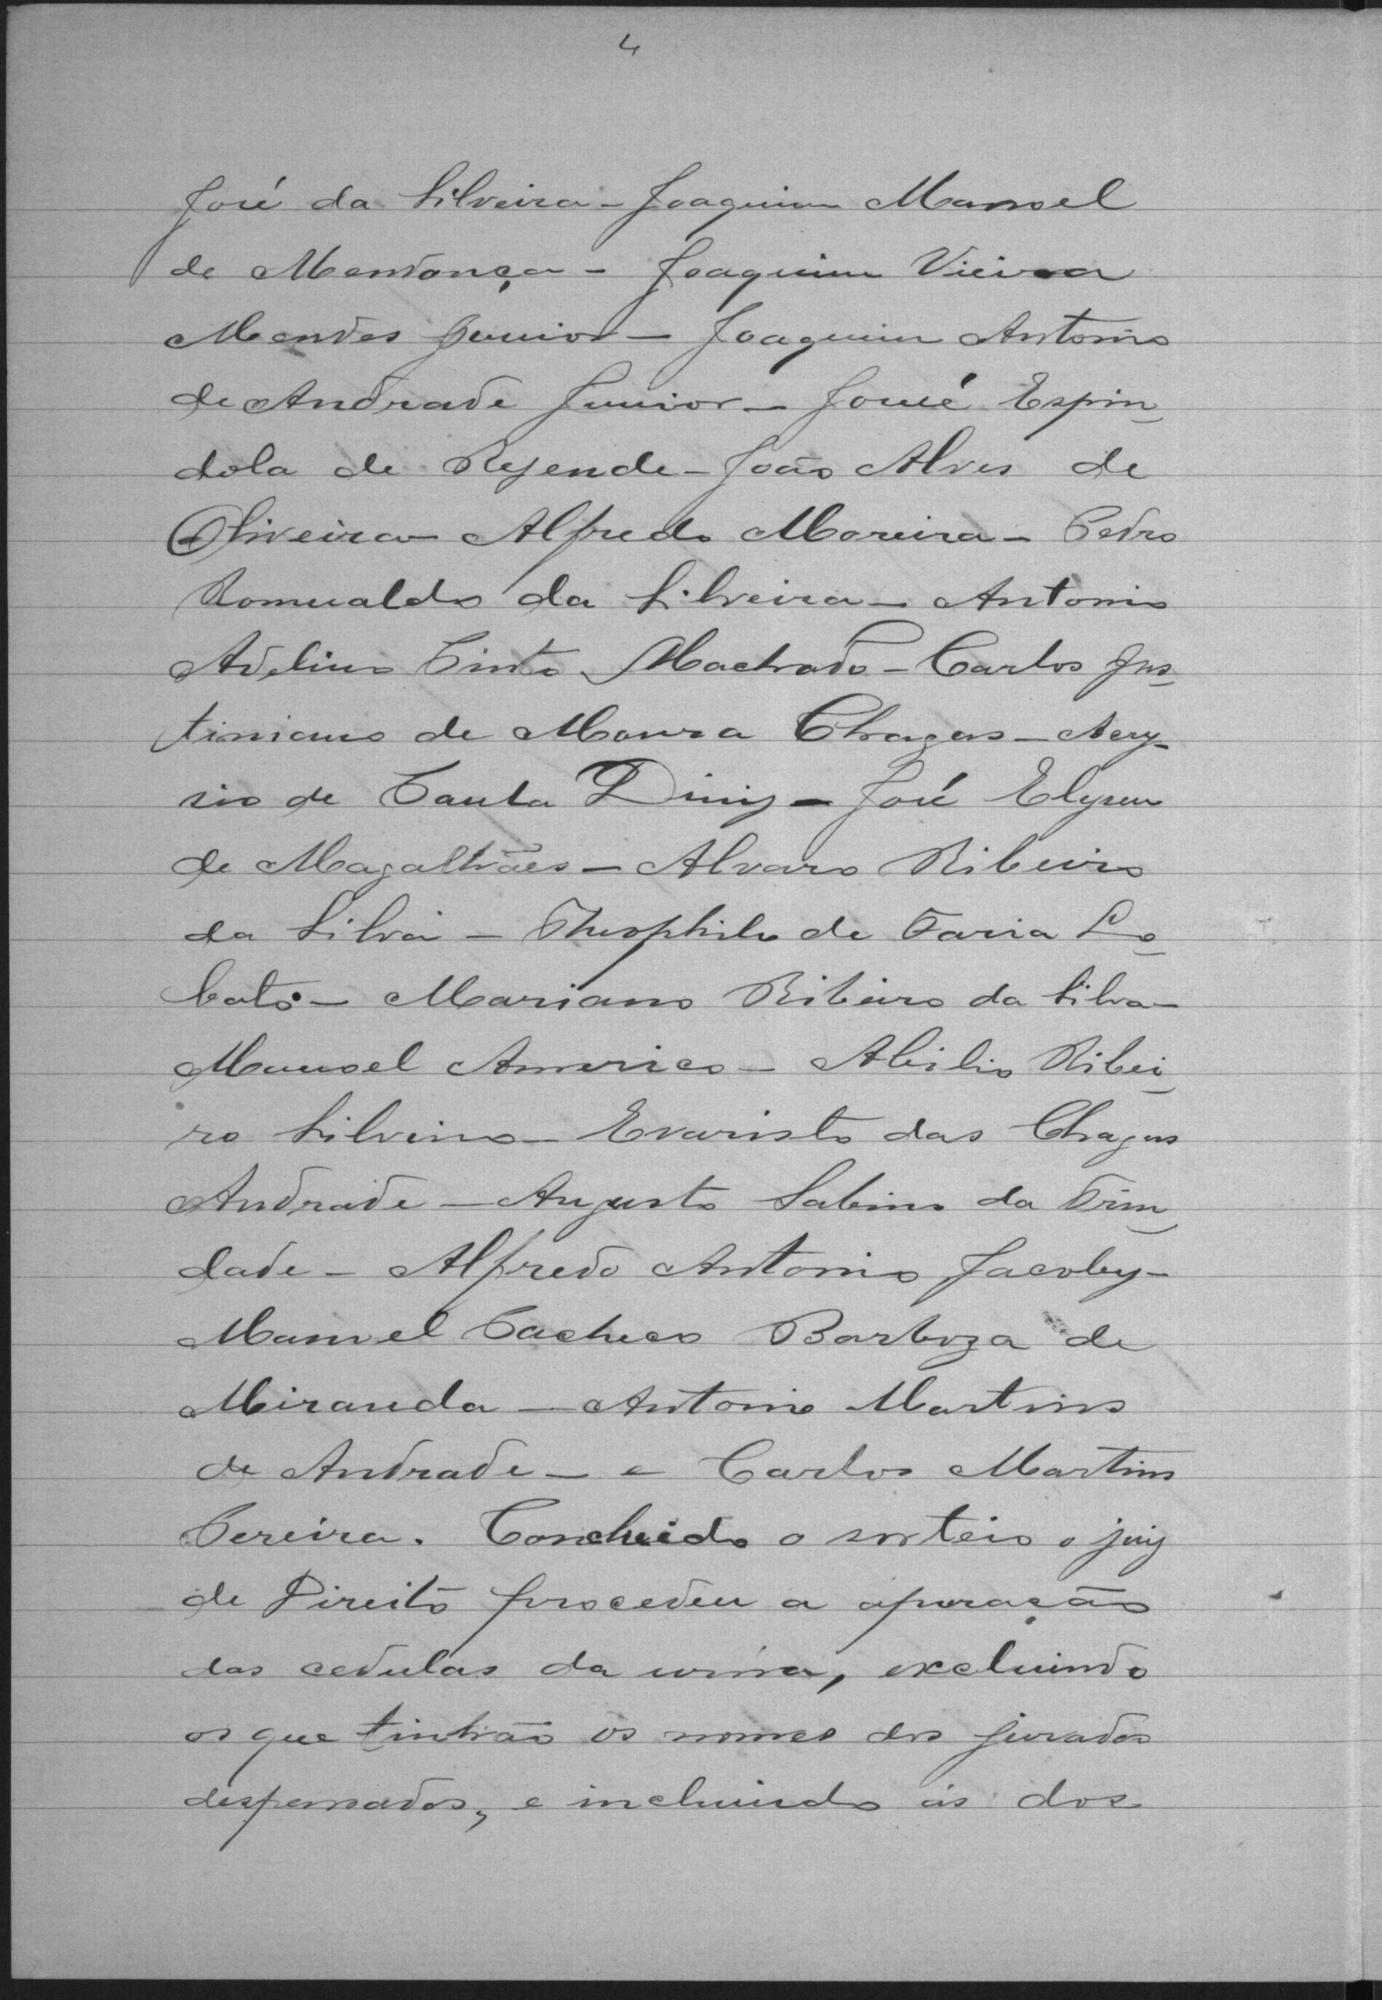 4
José da Silveira - Joaquim Manoel
de Mendonça - Joaquim Vieira
Mendes Junior - Joaquim Antonio
de Andrade Junior - José Espin
dola de Rezende - João Alves de
Oliveira - Alfredo Moreira - Pedro
Romualdo da Silveira - Antonio
Avelino Pinto Machado - Carlos Jus
tiniano de Moura Chagas - Nery
sio de Paula Diniz - José Elyseu
de Magalhães - Alvaro Ribeiro
da Silva - Theophilo de Faria Lo
bato - Mariano Ribeiro da Silva -
Manoel Americo - Abilio Ribei
ro Silvino - Evaristo das Chagas
Andrade - Augusto Sabino da Trin
dade - Alfredo Antonio Jacoby -
Manoel Pacheco Barboza de
Miranda - Antonio Martins
de Andrade - e Carlos Martins
Pereira. Concluido o sorteio o juiz
de Direito procedeu a apuração
das cedulas da urna, excluindo
os que tinhão os nomes dos jurados
despensados, e incluindo as dos